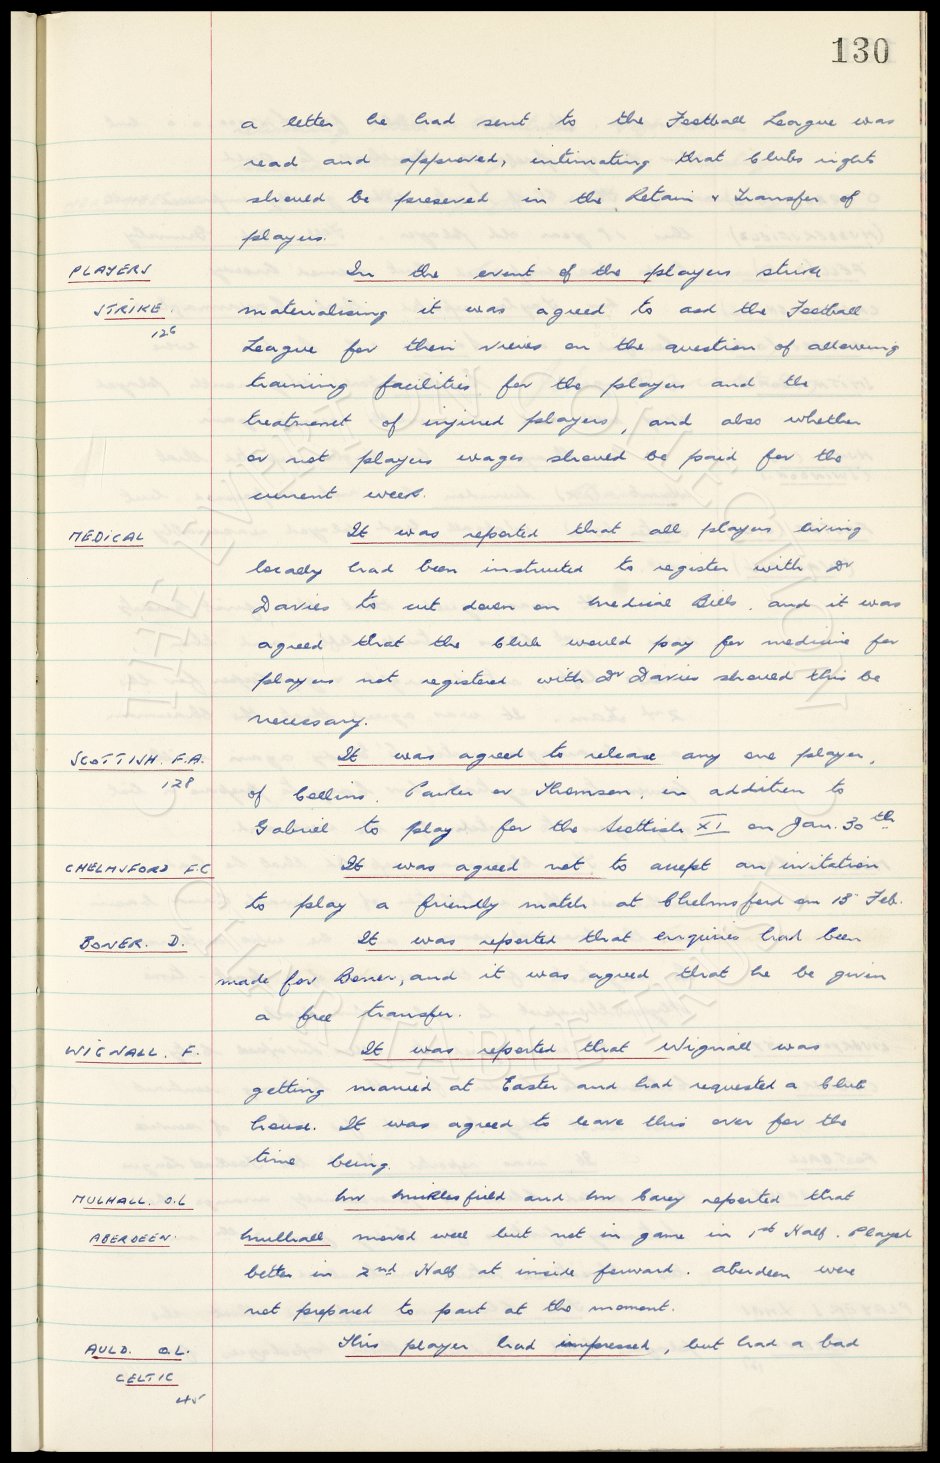 130
a letter he had sent to the Football League was
read and approved, intimating that Clubs rights
should be preserved in the Retain & Transfer of
players.
PLAYERS In the event of the players strike
STRIKE. materialising it was agreed to ask the Football
126
League for their views on the question of allowing
training facilities for the players and the
treatment of injured players, and also whether
or not players wages should be paid for the
current week.
MEDICAL It was reported that all players living
locally had been instructed to register with Dr
Davies to cut down on medical Bills. and it was
agreed that the Club would pay for medicine for
players not registered with Dr Davies should this be
necessary.
SCOTTISH. F.A. It was agreed to release any one player,
128
of Collins. Parker or Thomson, in addition to
Gabriel to play for the Scottish XI on Jan. 30th
CHELMSFORD F.C It was agreed not to accept an invitation
to play a friendly match at Chelmsford on 13 Feb.
BONER. D. It was reported that enquiries had been
made for Boner, and it was agreed that he be given
a free transfer.
WIGNALL. F. It was reported that Wignall was
getting married at Easter and had requested a Club
house. It was agreed to leave this over for the
time being.
MULHALL. O.L Mr Micklesfield and Mr Carey reported that
ABERDEEN. Mulhall moved well but not in game in 1st Half. Played
better in 2nd Half at inside forward. Aberdeen were
not prepared to part at the moment.
AULD. O.L. This player had impressed, but had a bad
CELTIC
45